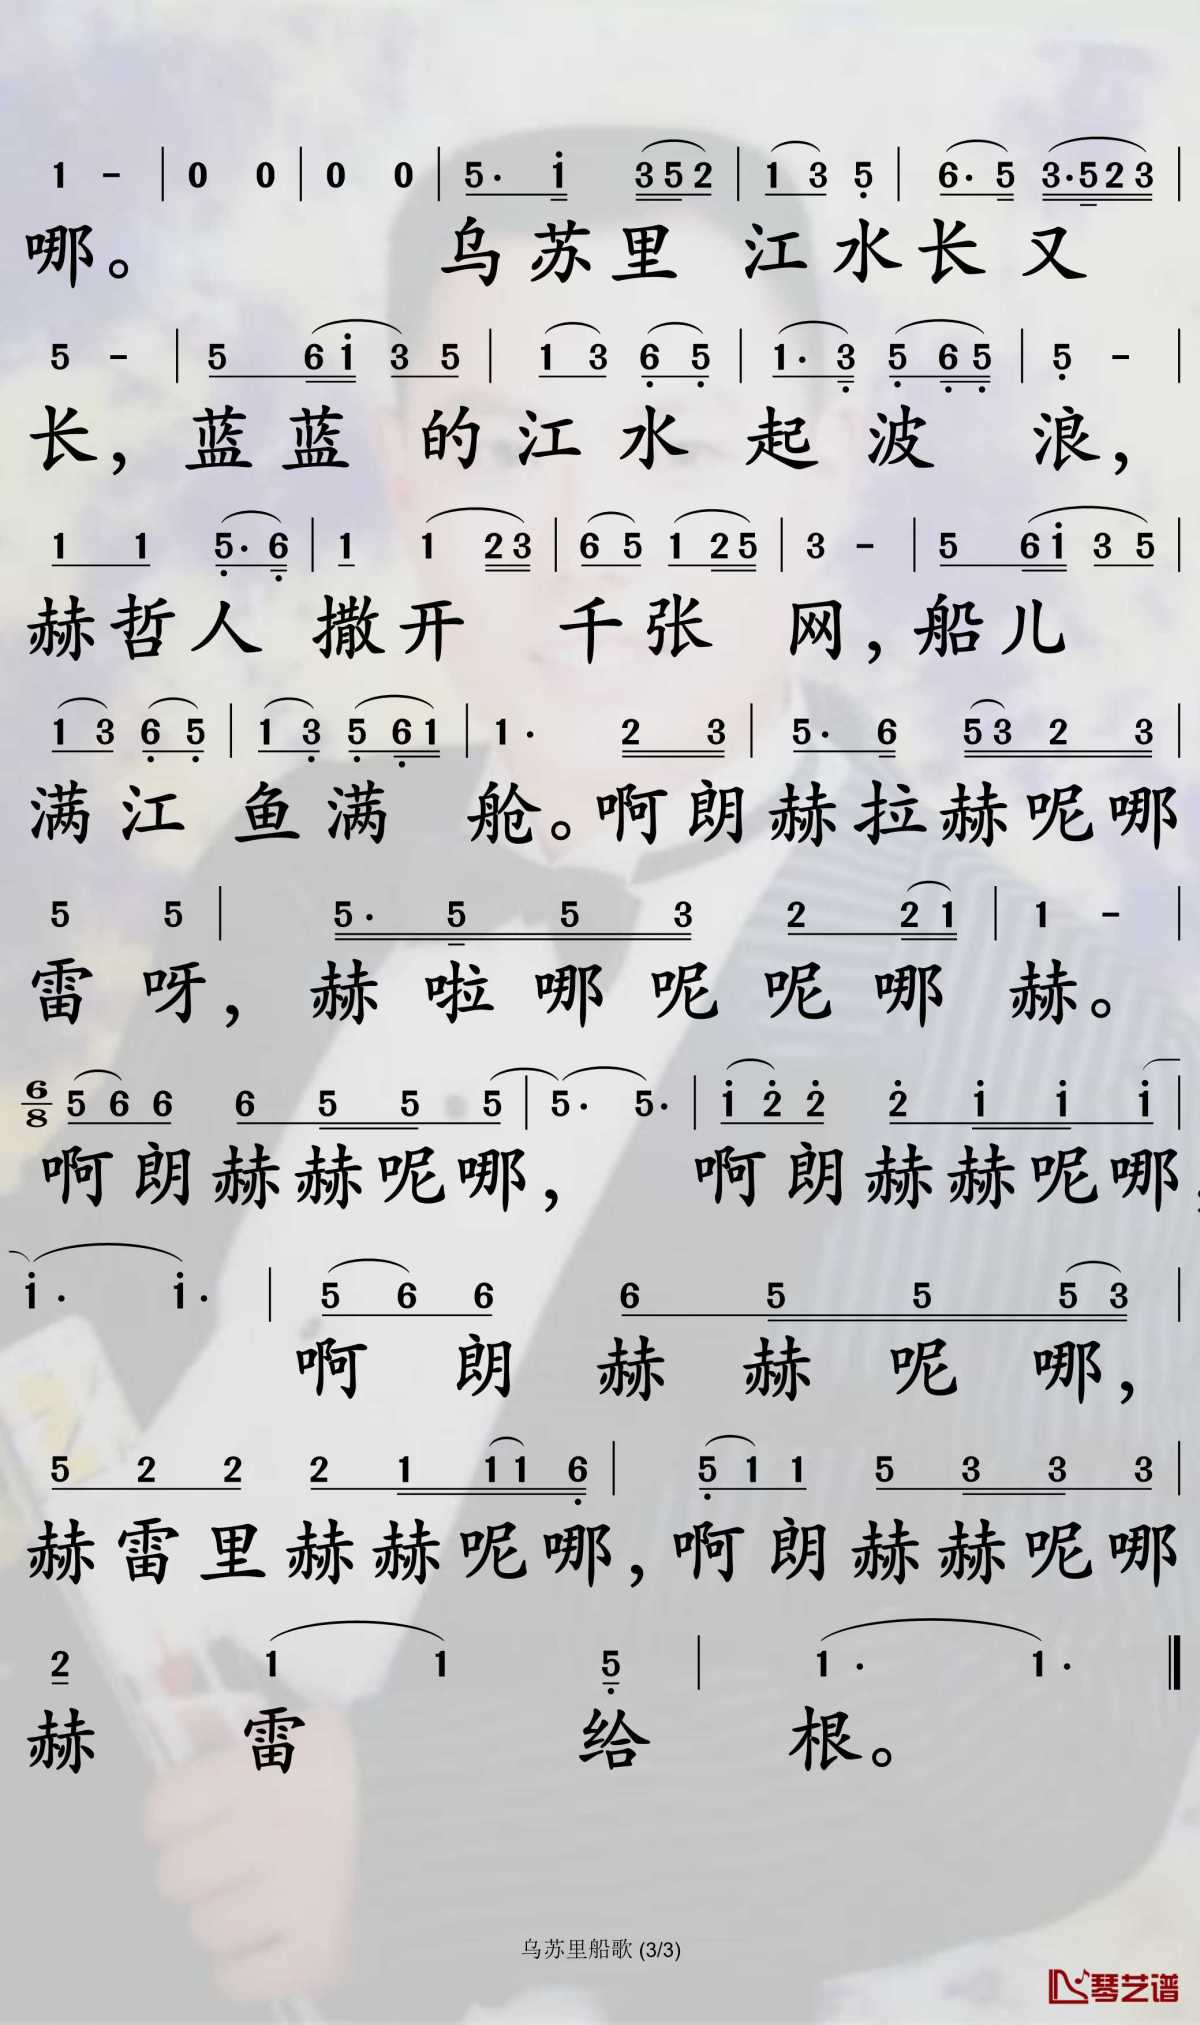 1 - | 0 0 | 0 0 | 5· i 3 5 2 | 1 3 5 | 6· 5 3·5 2 3 |
哪。 乌苏里 江水长又
5 - | 5 6 i 3 5 | 1 3 6 5 | 1· 3 5 6 5 | 5 - |
长，蓝蓝 的江水 起波 浪，
1 1 5· 6 | 1 1 2 3 | 6 5 1 2 5 | 3 - | 5 6 i 3 5 |
赫哲人 撒开 千张 网，船儿
1 3 6 5 | 1 3 5 6 1 | 1· 2 3 | 5· 6 5 3 2 3 |
满江 鱼满 舱。啊朗赫拉赫呢哪
5 5 | 5· 5 5 3 2 2 1 | 1 - |
雷呀，赫啦哪呢呢哪 赫。
6/8 5 6 6 6 5 5 5 | 5· 5· | i 2 2 2 i i i |
啊朗赫赫呢哪， 啊朗赫赫呢哪，
i· i· | 5 6 6 6 5 5 5 3 |
啊朗赫赫呢哪，
5 2 2 2 1 1 1 6 | 5 1 1 5 3 3 3 |
赫雷里赫赫呢哪，啊朗赫赫呢哪
2 1 1 5 | 1· 1· ‖
赫 雷 给 根。
乌苏里船歌 (3/3)
琴艺谱